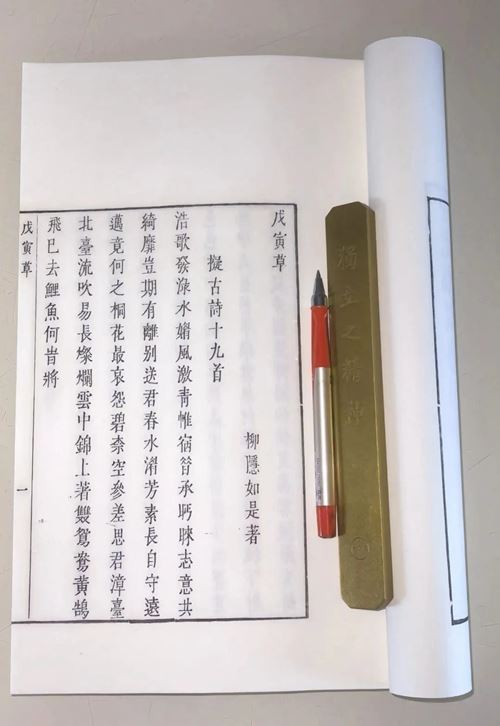 戊寅草
柳隱如是著
擬古詩十九首
浩歌發淥水風激青惟宿昔承眄睞志意共
綺靡豈期有離別送君春水湄芳素長自守遠
邁竟何之桐花最哀怨碧柰空參差思君漳臺
北臺流吹易長燦爛雲中錦上著雙鴛鴦黃鵠
飛已去鯉魚何旹將
戊寅草
一
獨立之精神